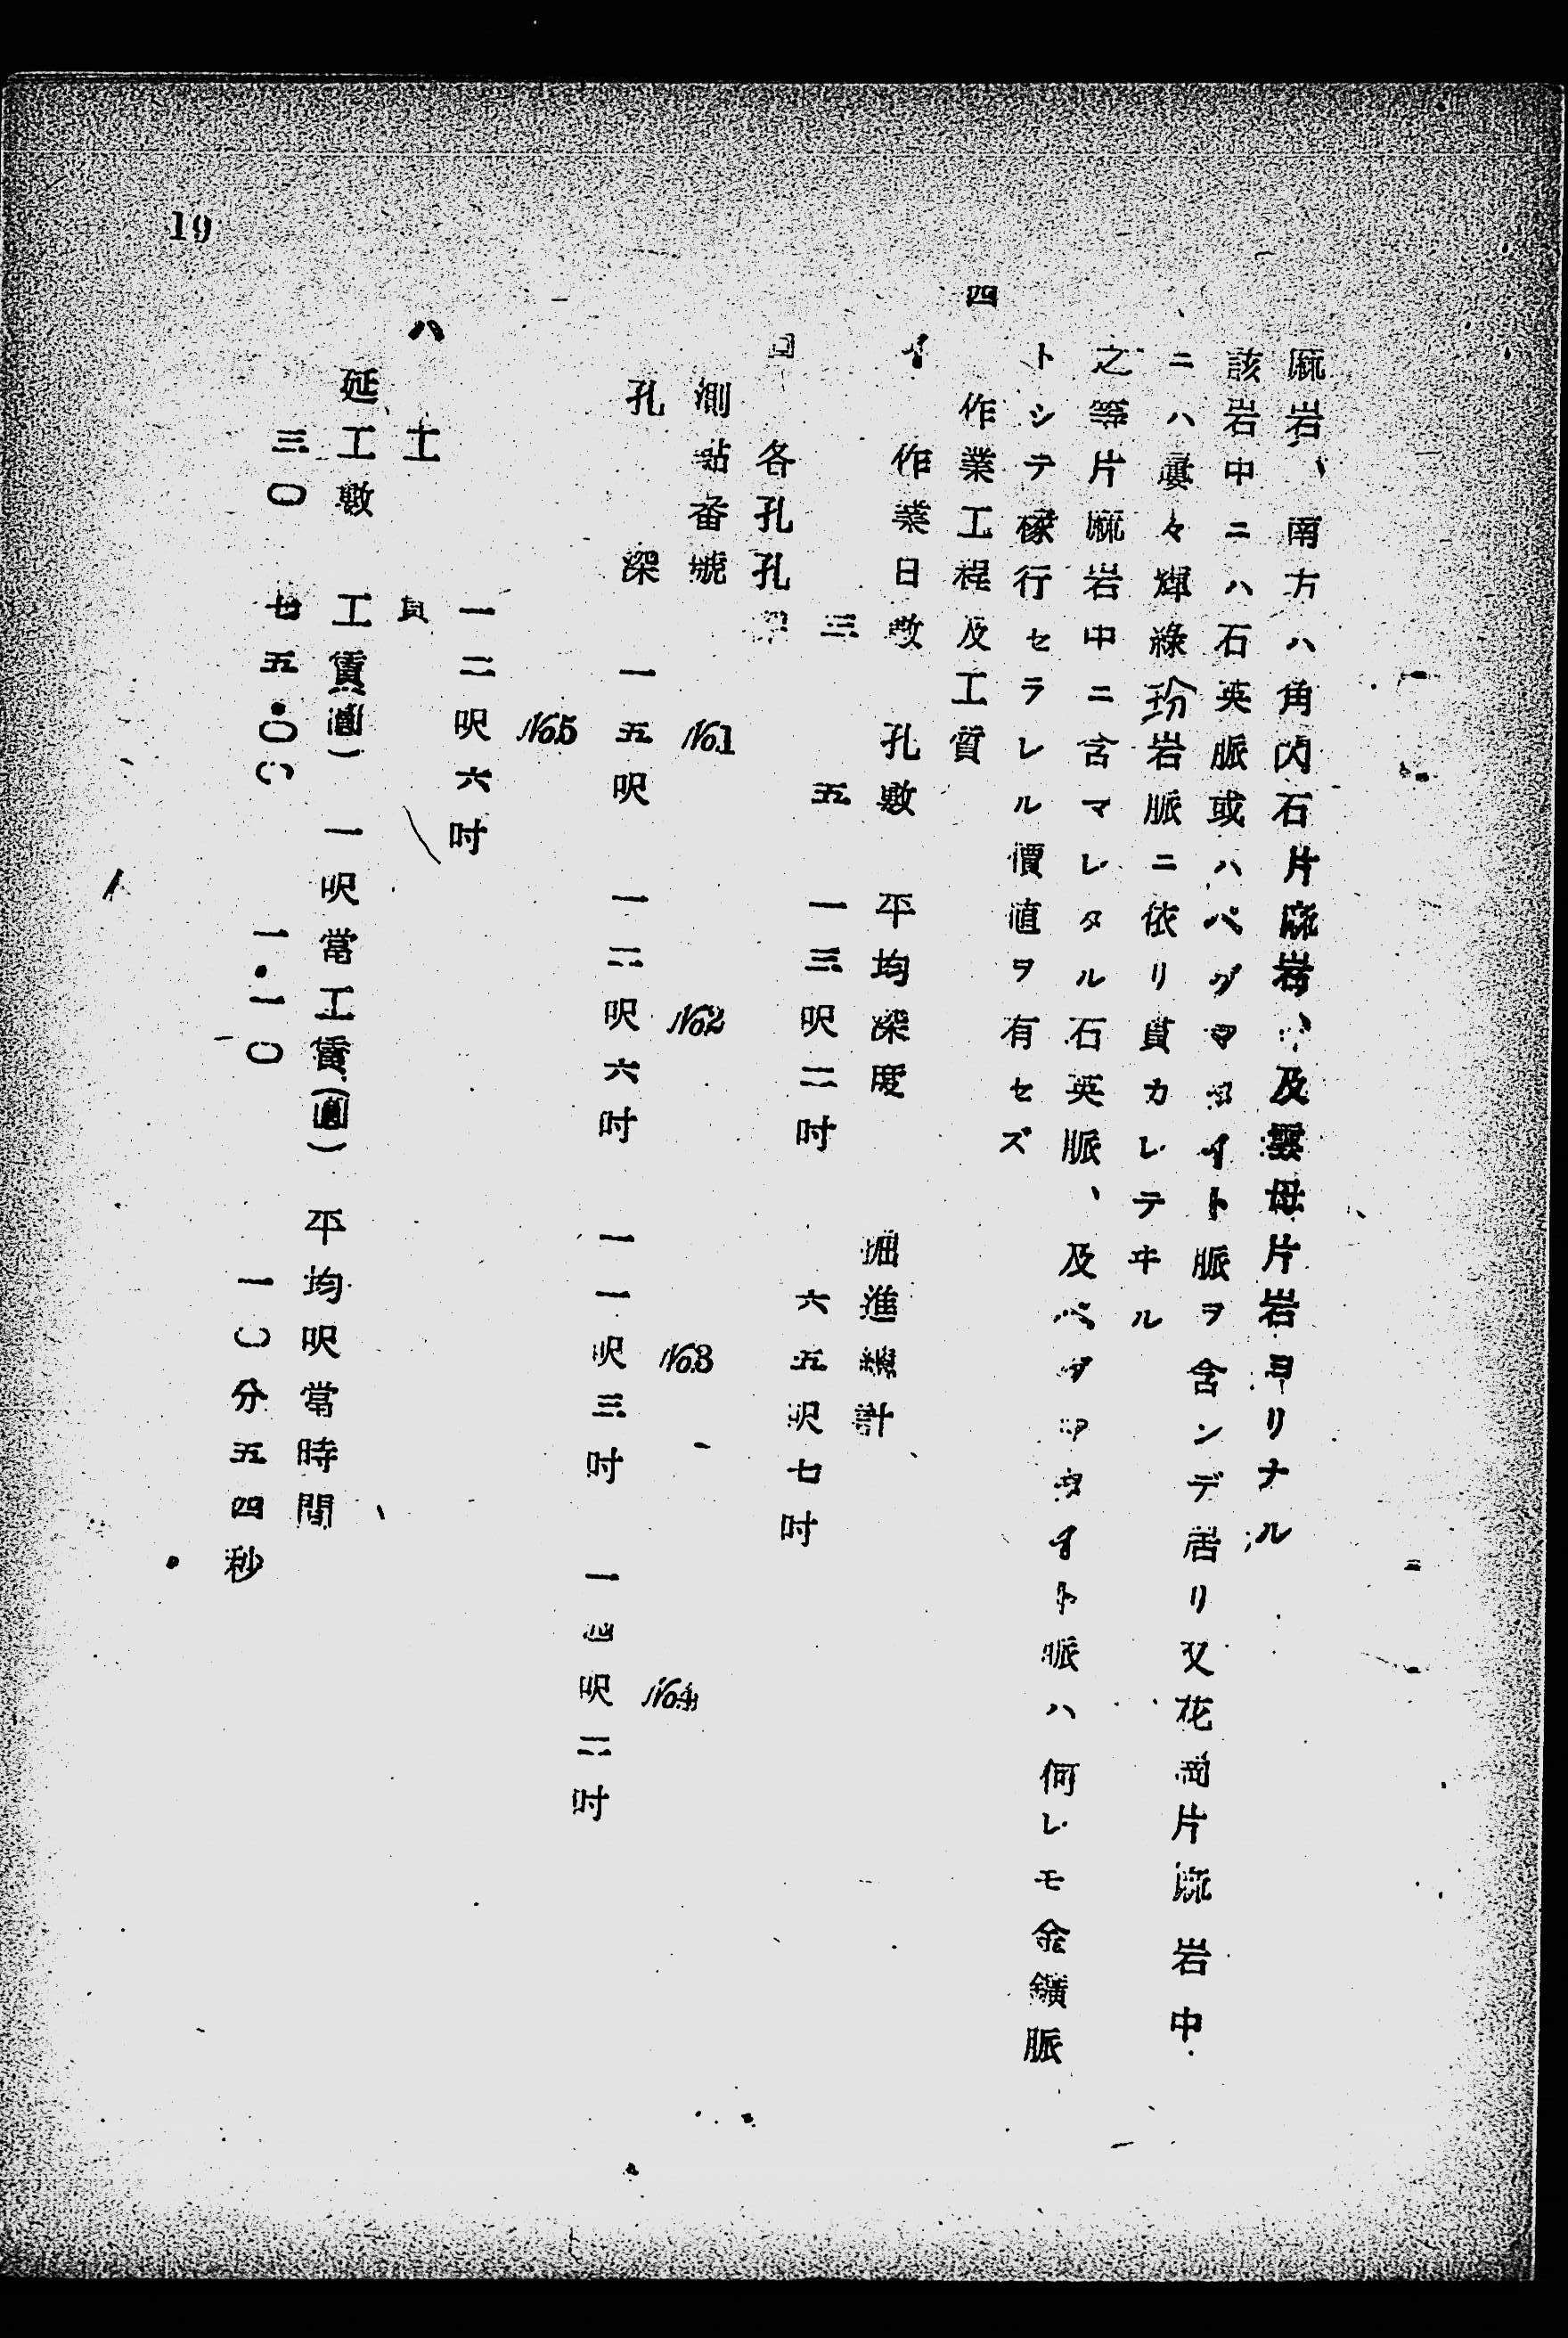 麻岩、南方ハ角閃石片麻岩、及雲母片岩ヨリナル
該岩中ニハ石英脈或ハペグマタイト脈ヲ含ンデ居リ又花崗片麻岩中
ニハ屡々輝綠玢岩脈ニ依リ貫カレテヰル
之等片麻岩中ニ含マレタル石英脈、及ペグマタイト脈ハ何レモ金鑛脈
トシテ稼行セラレル價値ヲ有セズ
四 作業工程及工賃
イ 作業日數 孔數 平均深度 掘進總計
三 五 一三呎二吋 六五呎七吋
ロ 各孔孔深
測點番號 No.1 No.2 No.3 No.4
孔深 一五呎 一二呎六吋 一一呎三吋 一四呎二吋
No.5
一二呎六吋
ハ 工 賃
延工數 工賃(圓) 一呎當工賃(圓) 平均呎當時間
三〇 七五.〇〇 一.一〇 一〇分五四秒
19